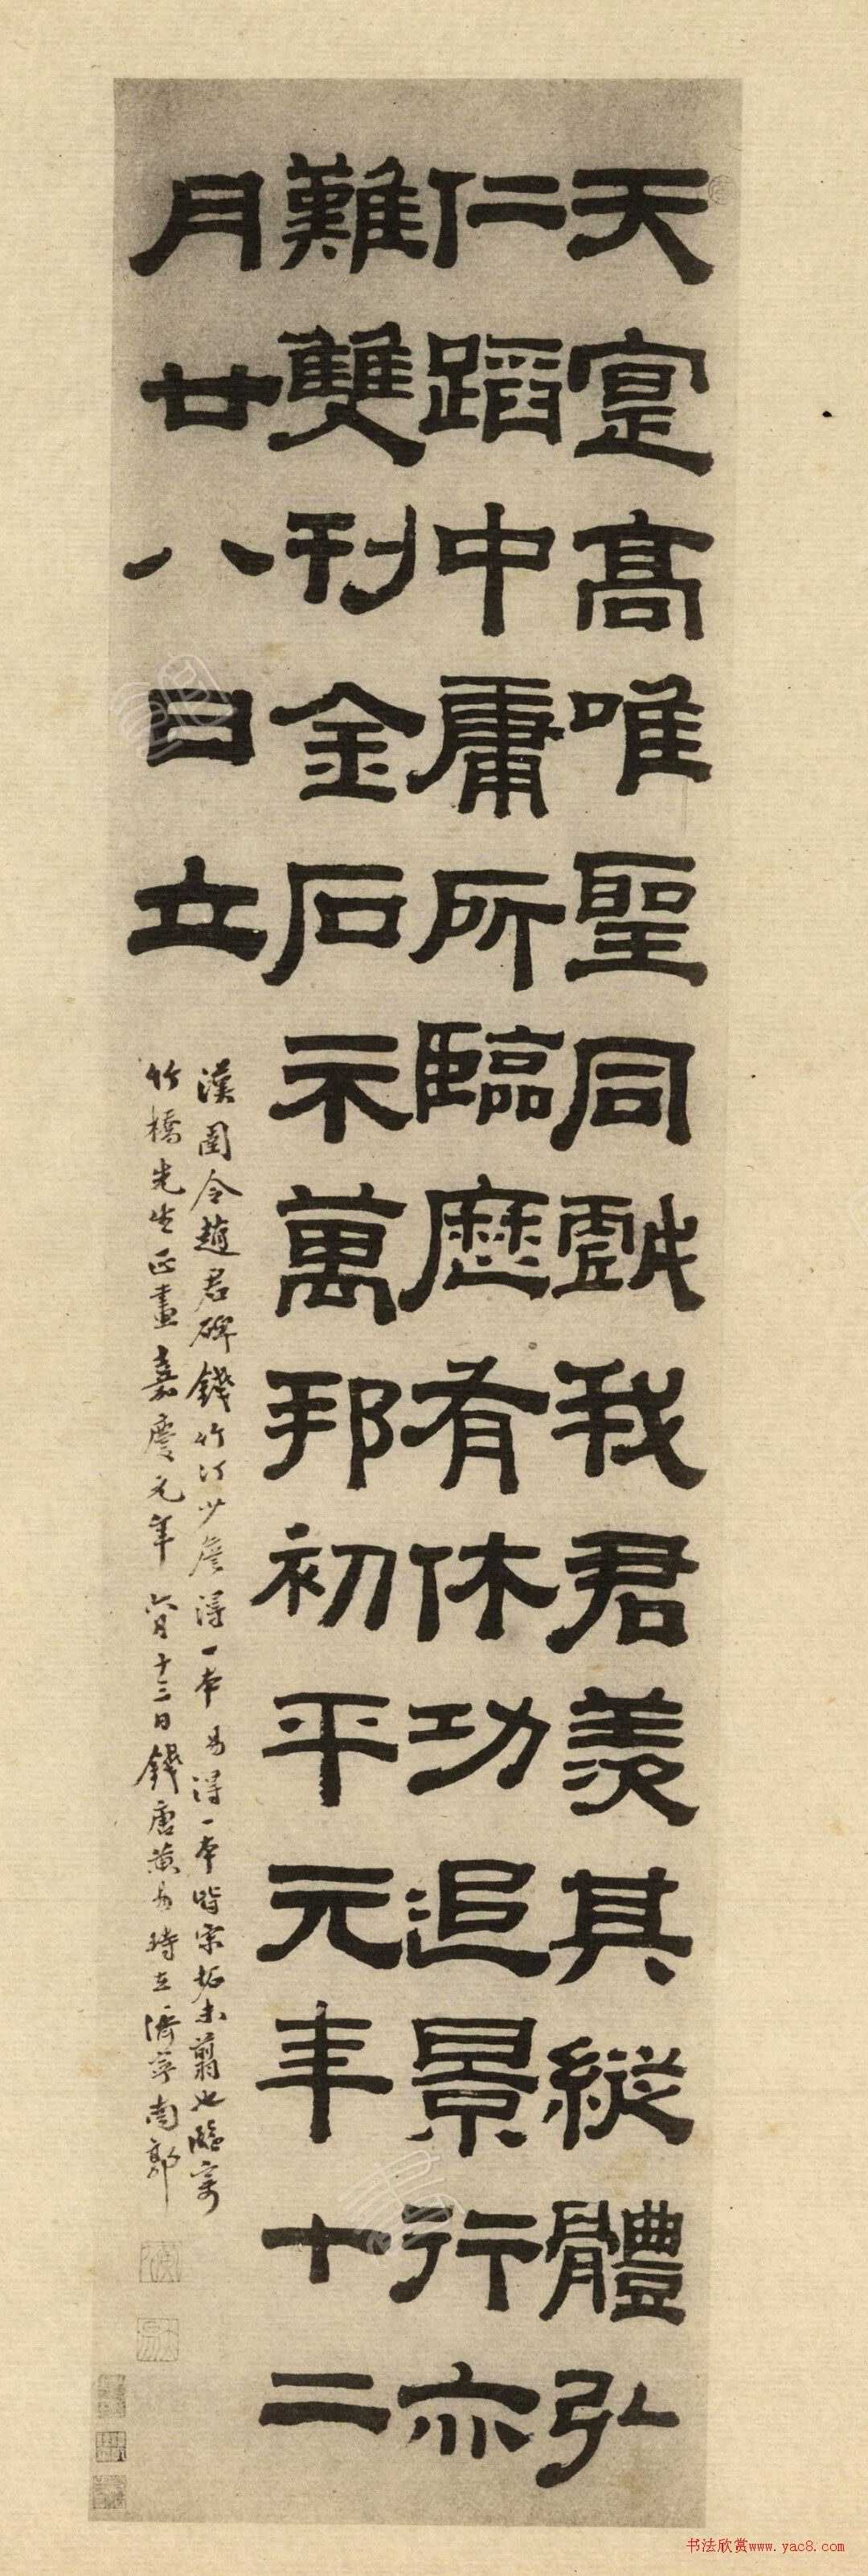 天寔高唯聖同戲我君羨其縱體弘
仁蹈中庸所臨歷有休功追景行亦
難雙刊金石示萬邦初平元年十二
月廿八日立
漢圉令趙君碑錢竹汀少詹得一本易得一本皆宋拓未翦也臨寄
竹橋先生正畫嘉慶元年六月十三日錢唐黃易時在濟寧南郭
书法欣赏www.yac8.com